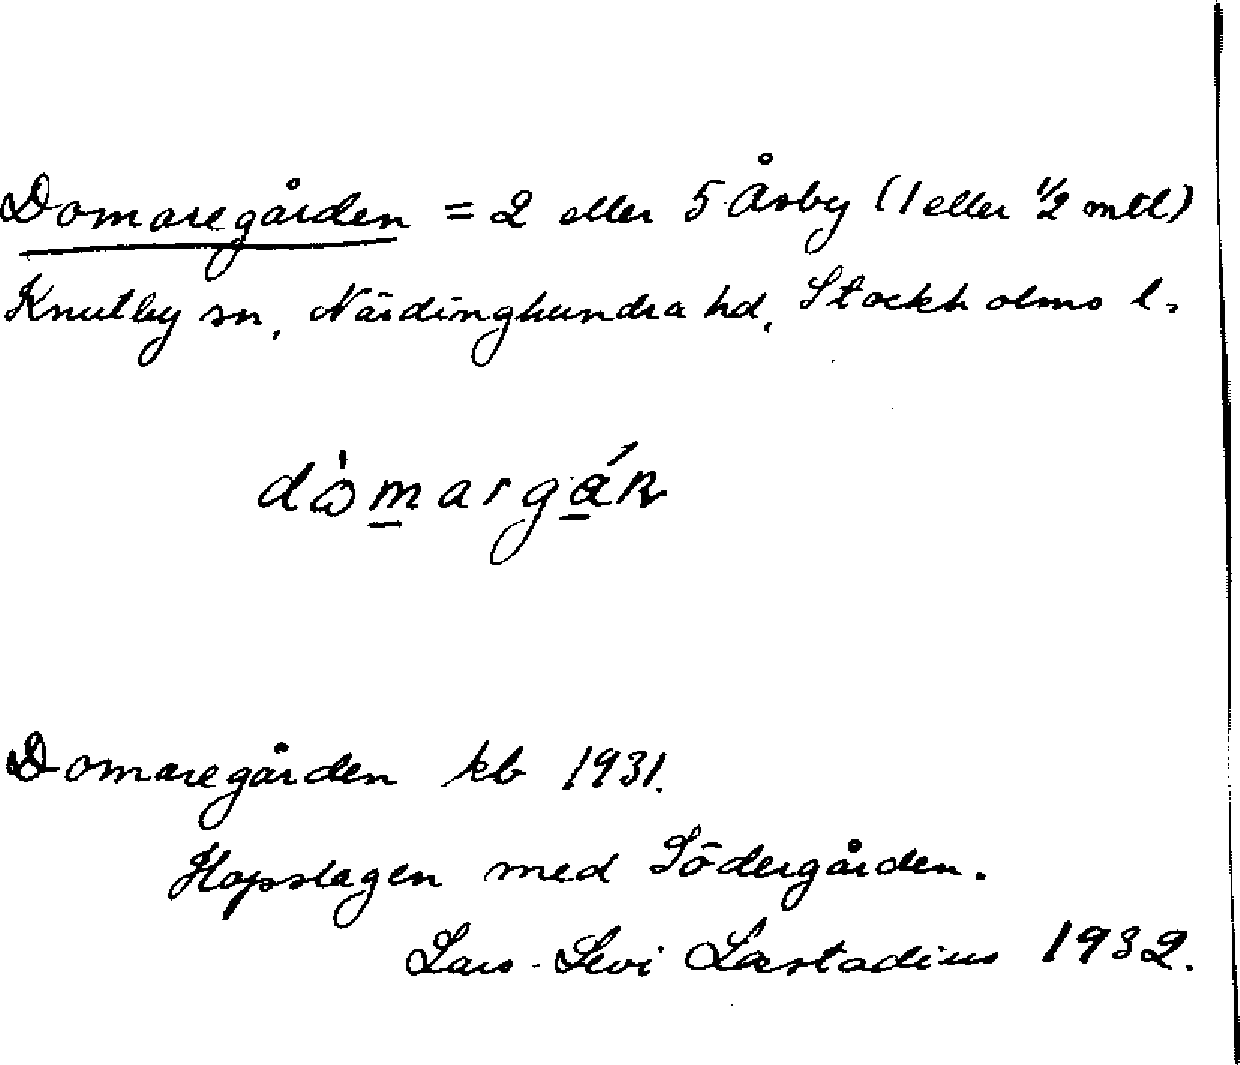 Domaregården = 2 eller 5 Åsby (1 eller 1/2 mtl)
Knutby sn, Närdinghundra hd, Stockholms l.
dòmargáṉ
Domaregården kb 1931.
Hopslagen med Södergården.
Lars-Levi Læstadius 1932.